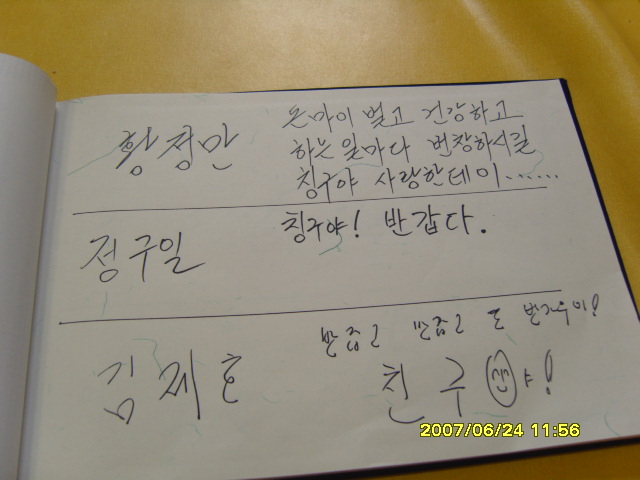 황정만
돈마이 벌고 건강하고
하는일마다 번창하시길
칭구야 사랑한데이......
정구일
칭구야! 반갑다.
김제호
반갑고 반갑고 또
친구야!
2007/06/24 11:56